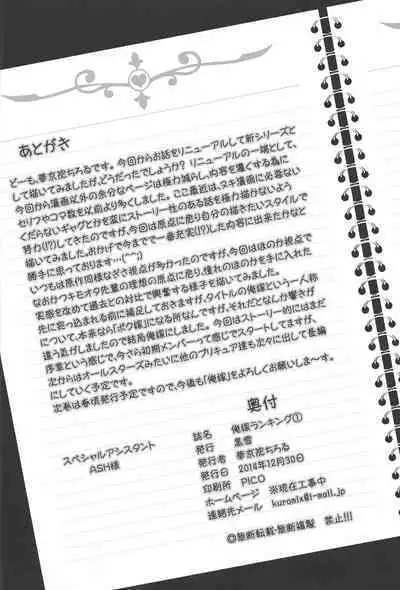 あとがき
どーも、華京院ちろるです。今回からお話をリニューアルして新シリーズと
して描いてみましたが、どうだったでしょうか? リニューアルの一端として、
今回から漫画以外の余分なページは極力減らし、内容を濃くする為に
セリフやコマ数を以前より多くしました。ここ最近は、ヌキ漫画に必要ない
くだらないギャグとかを主にストーリー性のある物を極力描かないよう
努力(!?)してきたのですが、今回は原点に戻り自分の描きたいスタイルで
描いてみました。おかげで今までで一番充実(!?)した内容に出来たかなと
勝手に思っております…(^^;)
いつもは原作同様なぎさ視点が多かったのですが、今回はほのか視点で
なおかつキモオタ先輩の理想の原点に戻り、憧れのほのかを手に入れた
実感を改めて過去との対比で興奮する様子を描いてみました。
先に突っ込まれる前に補足しておきますが、タイトルの俺嫁という一人称
について、本来なら「ボク嫁」になる所なんですが、それだとなんか響きが
違う気がしましたので結局俺嫁にしました。今回はストーリー的にはまだ
序章という感じで、今さら初期メンバーって感じでスタートしてますが、
次からはオールスターズみたいに他のプリキュア達も次々に出して長編
にしていく予定です。
次巻は春頃発行予定ですので、今後も「俺嫁」をよろしくお願いしま〜す。
スペシャルアシスタント
ASH様
奥付
誌名 俺嫁ランキング①
発行 黒雪
発行者 華京院ちろる
発行日 2014年12月30日
印刷所 PICO
ホームページ ※現在工事中
連絡先メール
◎無断転載・無断複製 禁止!!!